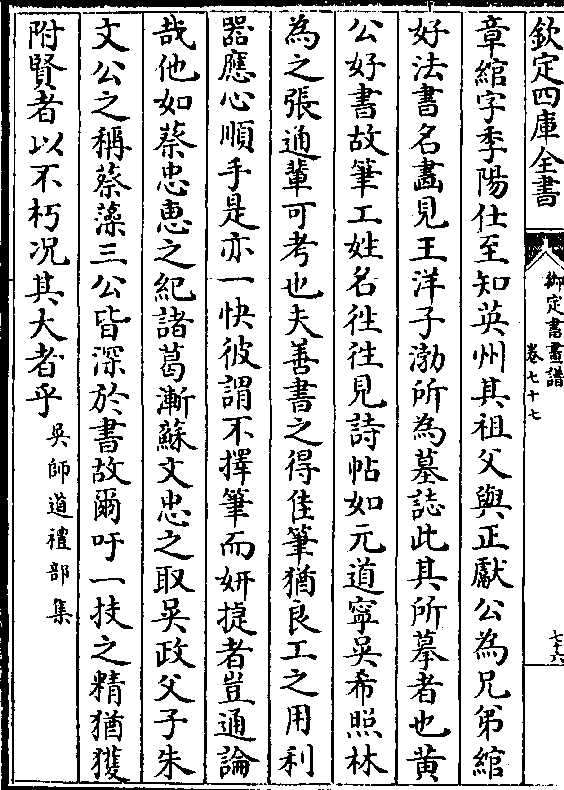 欽定四庫全書
御定書畫譜
卷七十七
七十六
章綰字季陽仕至知英州其祖父與正獻公為兄弟綰
好法書名畵見王洋子渤所為墓誌此其所摹者也黄
公好書故筆工姓名徃徃見詩帖如元道寧吳希照林
為之張通輩可考也夫善書之得佳筆猶良工之用利
器應心順手是亦一快彼謂不擇筆而妍捷者豈通論
哉他如蔡忠惠之紀諸葛漸蘇文忠之取吳政父子朱
文公之稱蔡藻三公皆深於書故爾吁一技之精猶獲
附賢者以不朽况其大者乎
吳師道禮部集